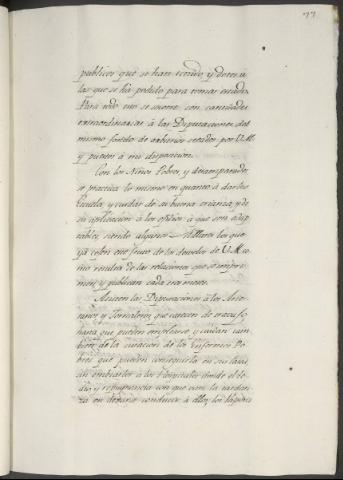 77
publicos que se han tenido, y dotes a
las que se ha podido para tomar estado.
Para todo esto se socorre con cantidades
extraordinarias á las Diputaciones del
mismo fondo de arbitrios creados por V.M.
y puesto á mi disposicion.
Con los Niños Pobres, y desamparados
se practica lo mismo en quanto á darles
Escuela, y cuidar de su buena crianza, y de
su aplicacion á los oficios á que son adap
tables, siendo algunos Millares los que
ya cojen este fruto de los desvelos de V.M. co
mo resulta de las relaciones que se impri
men y publican cada tres meses.
Asisten las Diputaciones á los Arte
sanos, y Jornaleros, que carecen de trabajo,
hasta que pueden emplearse, y cuidan tam
bien de la curacion de los Enfermos Po
bres que pueden conseguirla en sus casas,
sin embiarlos á los Hospitales donde el te
dio y repugnancia con que van, la tardan
za en dejarse conducir á ellos, los